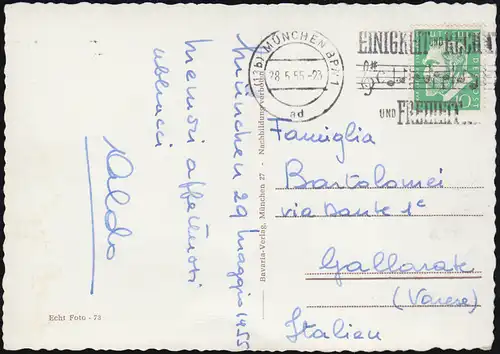 München 29 maggio 1955
Memori affettuosi
abbracci
Aldo
(13b) MÜNCHEN BPA 1
28.5.55-23
ad
EINIGKEIT UND RECHT
UND FREIHEIT
Famiglia
Bartolomei
via Dante 1c
Gallarate
(Varese)
Italien
Bavaria-Verlag, München 27 - Nachbildung verboten
Echt Foto - 73